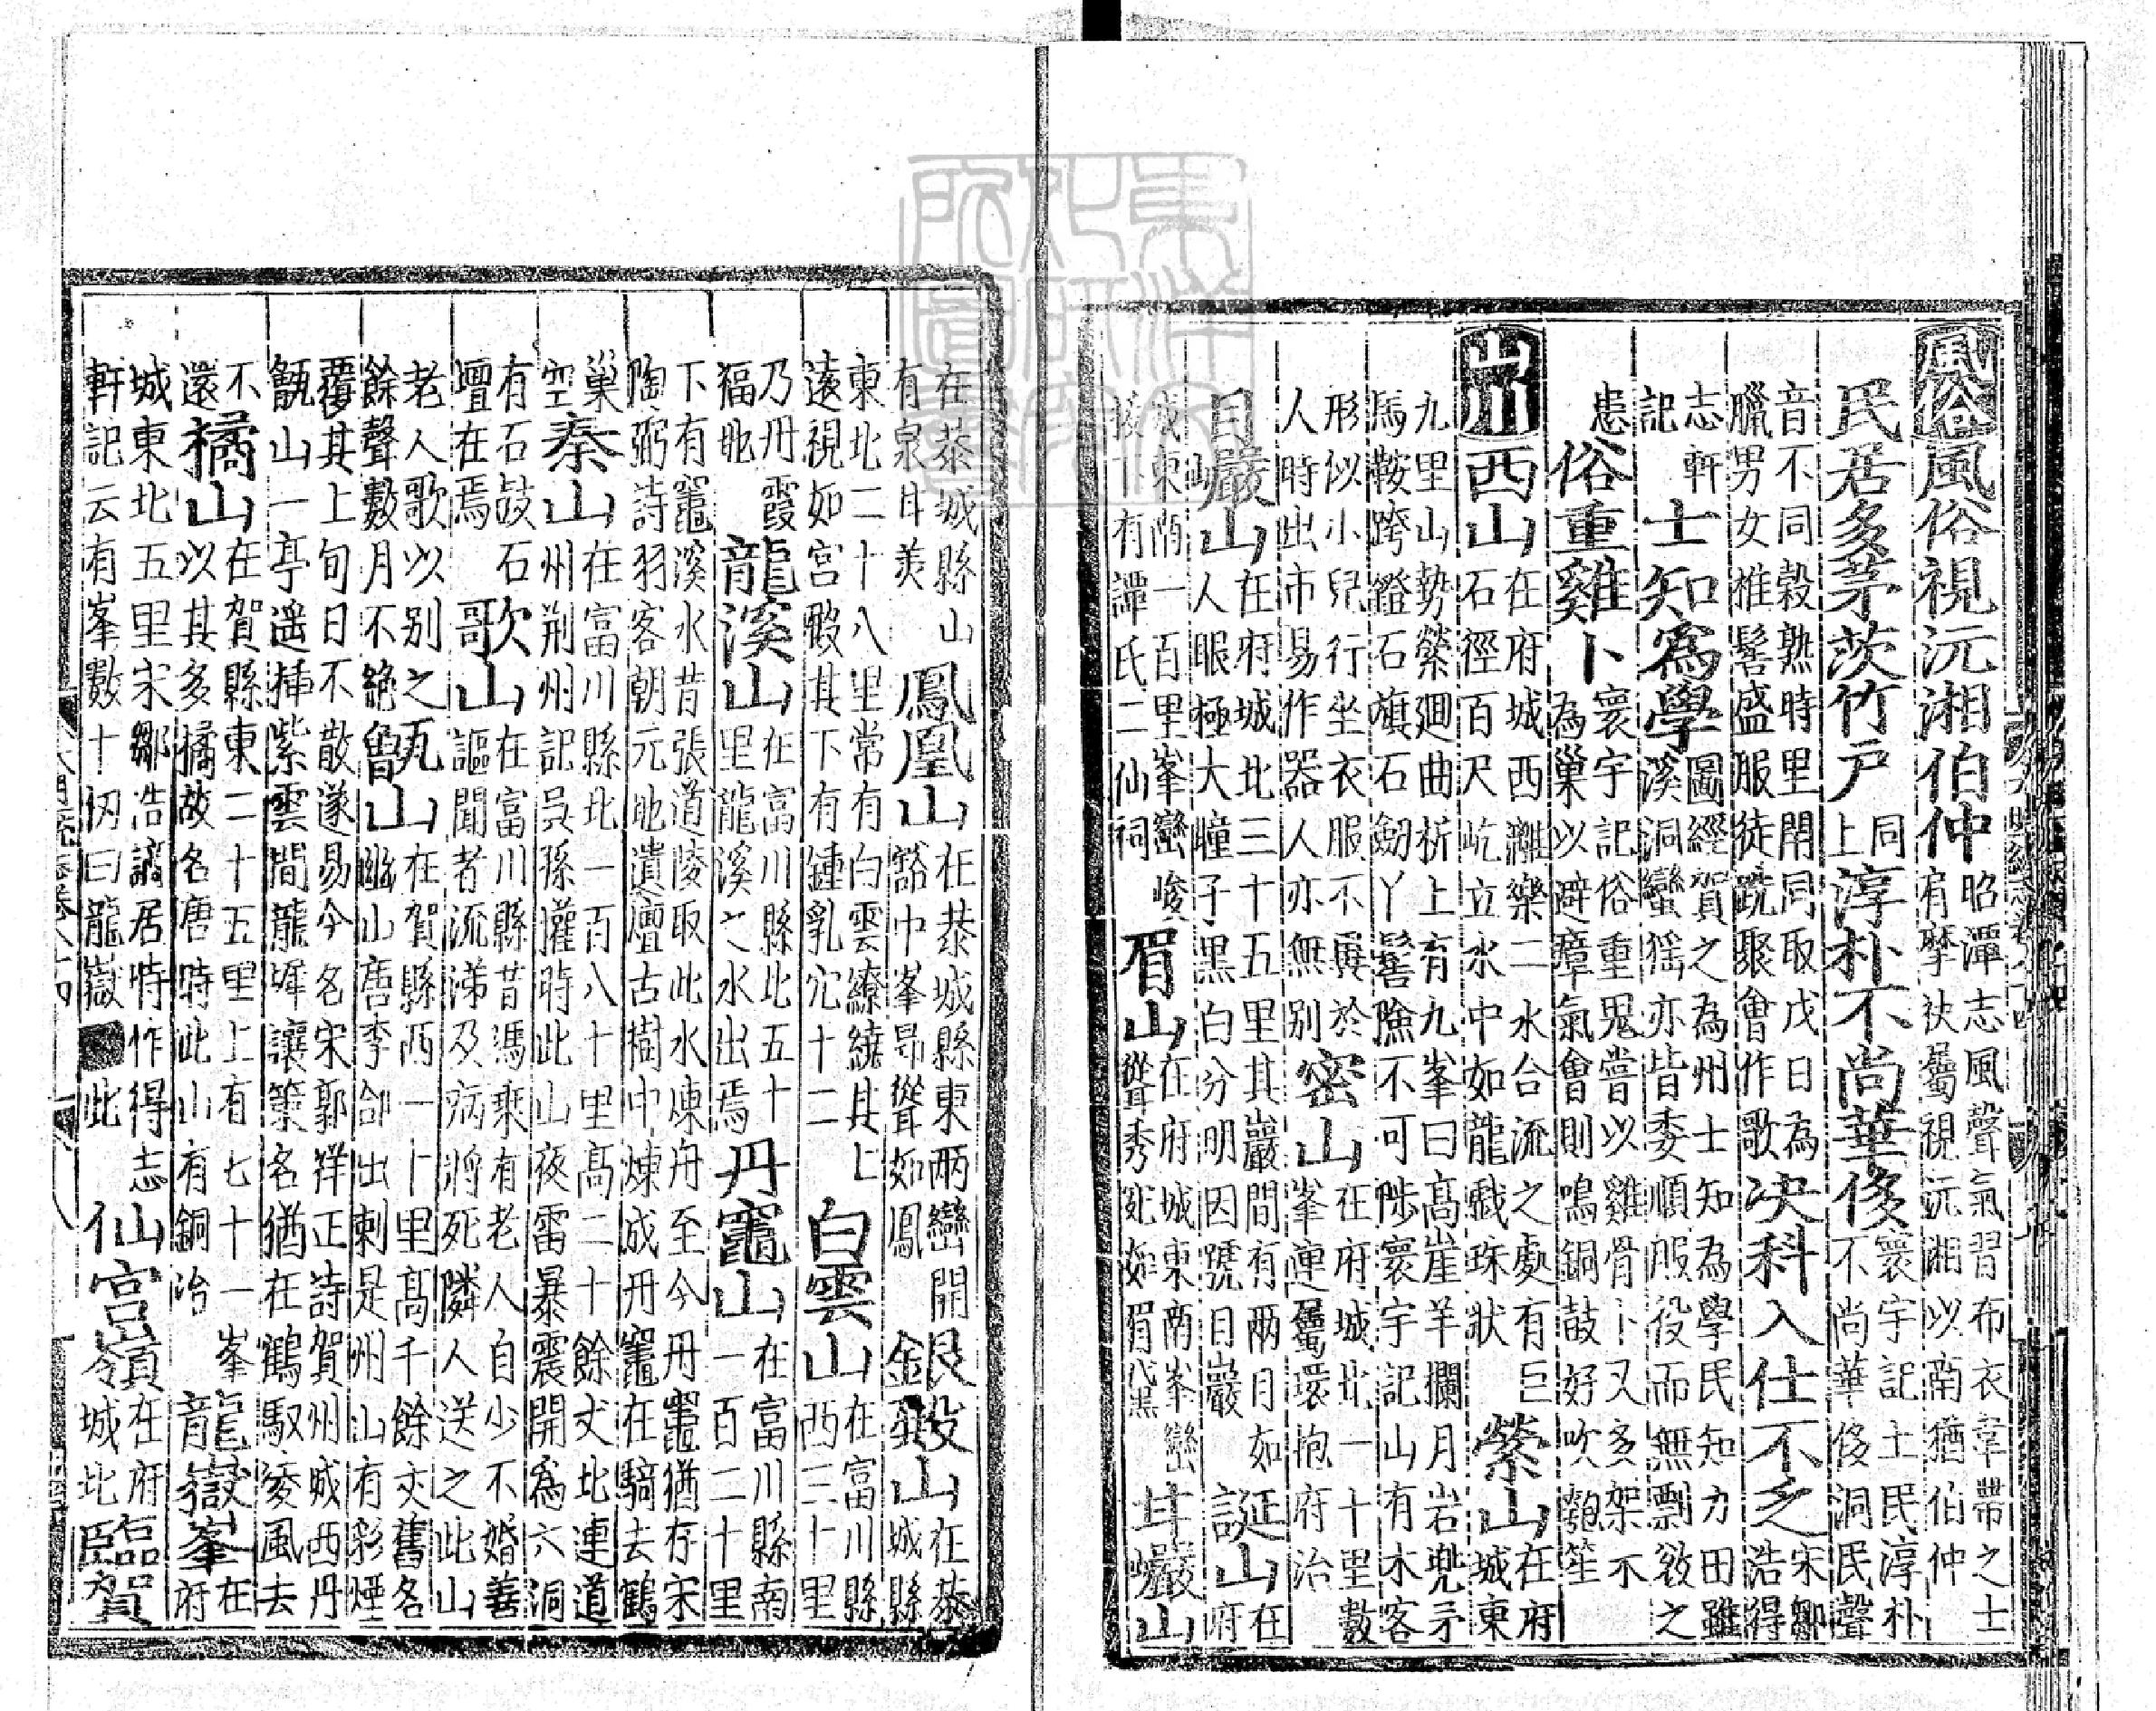 風俗風俗視沅湘伯仲昭潭志風聲氣習布衣韋帶之士有摩袂屬視沅湘以南猶伯仲
民居多茅茨竹戶同上淳朴不尚華侈寰宇記土民淳朴不尚華侈洞民聲
音不同穀熟時里閈同取戊日為臘男女椎髻盛服徒跣聚會作歌决科入仕不乏宋鄒浩得
志軒記士知為學圖經賀之為州士知為學民知力田雖溪洞蠻猺亦皆委順服役而無剽敓之
患俗重雞卜寰宇記俗重鬼嘗以雞骨卜又多架木為巢以避瘴氣會則鳴銅鼓好吹匏笙
山川西山在府城西灕樂二水合流之處有巨石徑百尺屹立水中如龍戲珠狀縈山在府城東
九里山勢縈廻曲折上有九峯曰高崖羊攔月岩兠矛馬鞍跨鐙石旗石劒丫髻險不可陟寰宇記山有木客
形似小兒行坐衣服不異於人時出市易作器人亦無別密山在府城北一十里數峯連屬環抱府治
目巖山在府城北三十五里其巖間有兩目如人眼極大瞳子黑白分明因號目巖誕山在府
城東南一百里峯巒峻拔下有譚氏二仙祠眉山在府城東南峯巒聳秀宛如眉黛甘巖山
在恭城縣山有泉甘美鳳凰山在恭城縣東兩巒開豁中峯昂聳如鳳銀殿山在恭城縣
東北二十八里常有白雲繚繞其上遠視如宮殿其下有鍾乳穴十二白雲山在富川縣西三十里
乃丹霞福地龍溪山在富川縣北五十里龍溪之水出焉丹竈山在富川縣南一百二十里
下有竈溪水昔張道陵取此水煉丹至今丹竈猶存宋陶弼詩羽客朝元地遺壇古樹中煉成丹竈在騎去鶴
巢空秦山在富川縣北一百八十里高二十餘丈北連道州荊州記吳孫權時此山夜雷暴震開為六洞
有石鼓石壇在焉歌山在富川縣昔馮乘有老人自少不婚善謳聞者流涕及病將死隣人送之此山
老人歌以别之餘聲數月不絶甑山在賀縣西一十里高千餘丈舊名幽山唐李郃出刺是州山有彩煙
覆其上旬日不散遂易今名宋郭祥正詩賀州城西丹甑山一亭遥插紫雲間龍墀讓策名猶在鶴馭凌風去
不還橘山在賀縣東二十五里上有七十一峯以其多橘故名唐時此山有銅冶龍嶽峯在府
城東北五里宋鄒浩謫居時作得志軒記云有峯數十仞曰龍嶽此仙宮嶺在府城北臨賀